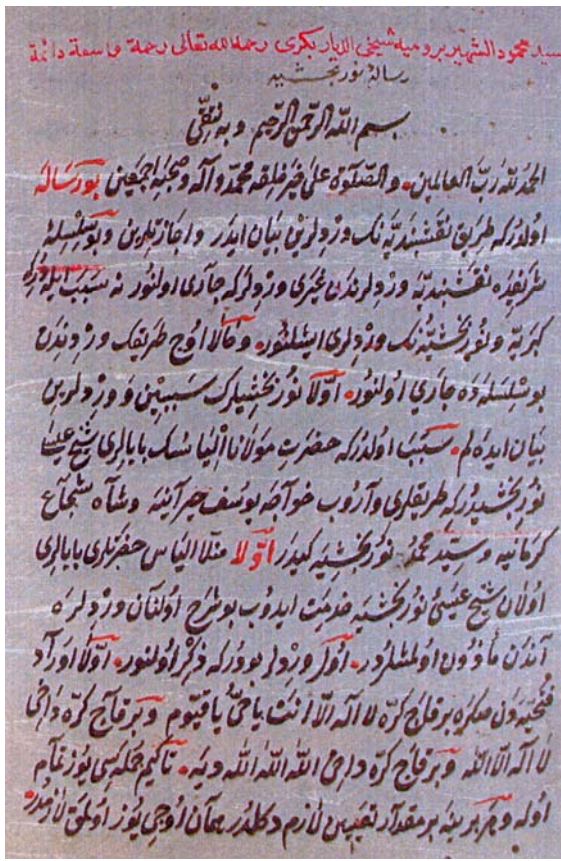 سيد محمود الشهير برومية شيخى الديار بكرى رحمه الله تعالى رحمة واسعة دائمة
رسالهٔ نور بخشيه
بسم الله الرحمن الرحيم وبه ثقتى
الحمد لله رب العالمين. والصلوة على خير خلقه محمد وآله وصحبه اجمعين بو رساله
اولدركه طريق نقشبنديه نك وردلرين بيان ايدر واجازتلرين وبو سلسلهٔ
شريفده نقشبنديه وردلرندن غيرى وردلركه جارى اولنور نه سبب ايله دركه
كبريه ونور بخشيه نك وردلرى ايشلنور. وحالا اوچ طريقك وردندن
بو سلسله ده جارى اولنور. اولا نور بخشيلرك سببين ووردلرين
بيان ايده لم. سبب اولدركه حضرت مولانا الياسك بابالرى شيخ عيسى
نور بخشيدركه طريقلرى واروب خواجه يوسف حيرآينه وشاه شجاع
كرمانيه وسيد محمد نور بخشيه كيدر اولا منلا الياس حضرتلرى بابالرى
اولان شيخ عيسئ نور بخشيه خدمت ايدوب بو شرح اولنان وردلره
آندن مأذون اولمشلردر. اول وردلر بودركه ذكر اولنور. اولا اوراد
فتحيه دن صكره برقاج كره لا اله الا انت يا حى يا قيوم وبرقاج كره داخى
لا اله الا الله وبرقاج كره داخى الله الله الله ديه. تاكيم جمله سى يوز تمام
اوله وهر برينه بر مقدار تعيين لازم دكلدر همان اوچى يوز اولمق لازمدر.